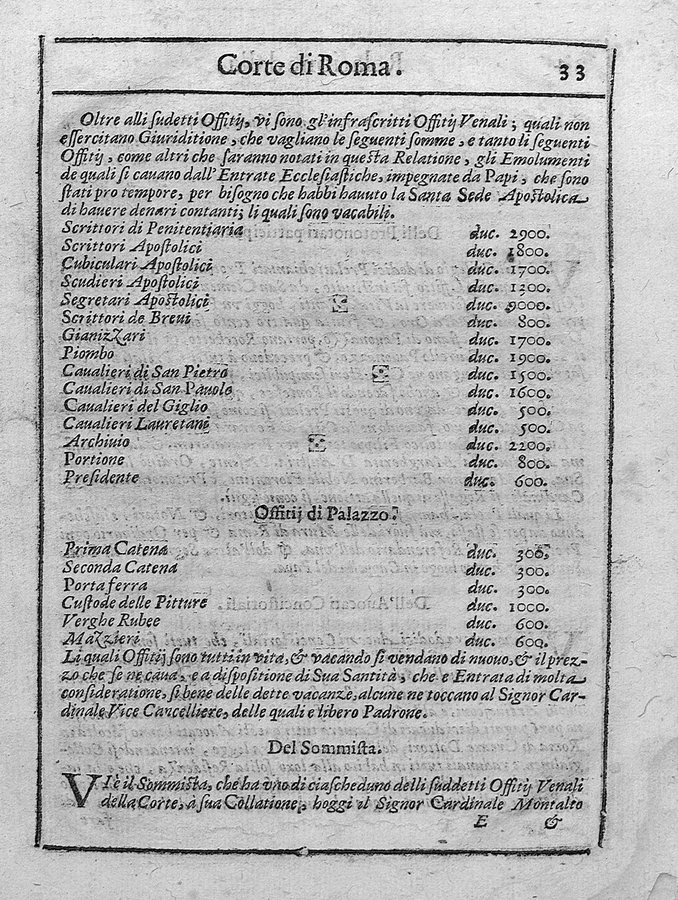 Corte di Roma. 33
Oltre alli ſudetti Offitij, vi ſono gl'infraſcritti Offitij Venali; quali non
eſſercitano Giuriditione, che vagliano le ſeguenti ſomme, e tanto li ſeguenti
Offitij, come altri che ſaranno notati in queſta Relatione, gli Emolumenti
de quali ſi cauano dall'Entrate Eccleſiaſtiche, impegnate da Papi, che ſono
ſtati pro tempore, per biſogno che habbi hauuto la Santa Sede Apoſtolica
di hauere denari contanti; li quali ſono vacabili.
Scrittori di Penitentiaria duc. 2900.
Scrittori Apoſtolici duc. 1800.
Cubiculari Apoſtolici duc. 1700.
Scudieri Apoſtolici duc. 1200.
Segretari Apoſtolici duc. 9000.
Scrittori de Breui duc. 800.
Gianizzari duc. 1700.
Piombo duc. 1900.
Caualieri di San Pietro duc. 1500.
Caualieri di San Pauolo duc. 1600.
Caualieri del Giglio duc. 500.
Caualieri Lauretani duc. 500.
Archiuio duc. 2200.
Portione duc. 800.
Preſidente duc. 600.
Offitij di Palazzo.
Prima Catena duc. 300.
Seconda Catena duc. 300.
Porta ferra duc. 300.
Cuſtode delle Pitture duc. 1000.
Verghe Rubee duc. 600.
Mazzieri duc. 600.
Li quali Offitij ſono tutti in vita, & vacando ſi vendano di nuouo, & il prez-
zo che ſe ne caua, e a diſpoſitione di Sua Santità, che e Entrata di molta
conſideratione, ſi bene delle dette vacanze, alcune ne toccano al Signor Car-
dinale Vice Cancelliere, delle quali e libero Padrone.
Del Sommiſta.
VI è il Sommiſta, che ha vno di ciaſcheduno delli ſuddetti Offitij Venali
della Corte, à ſua Collatione, hoggi il Signor Cardinale Montalto
E &